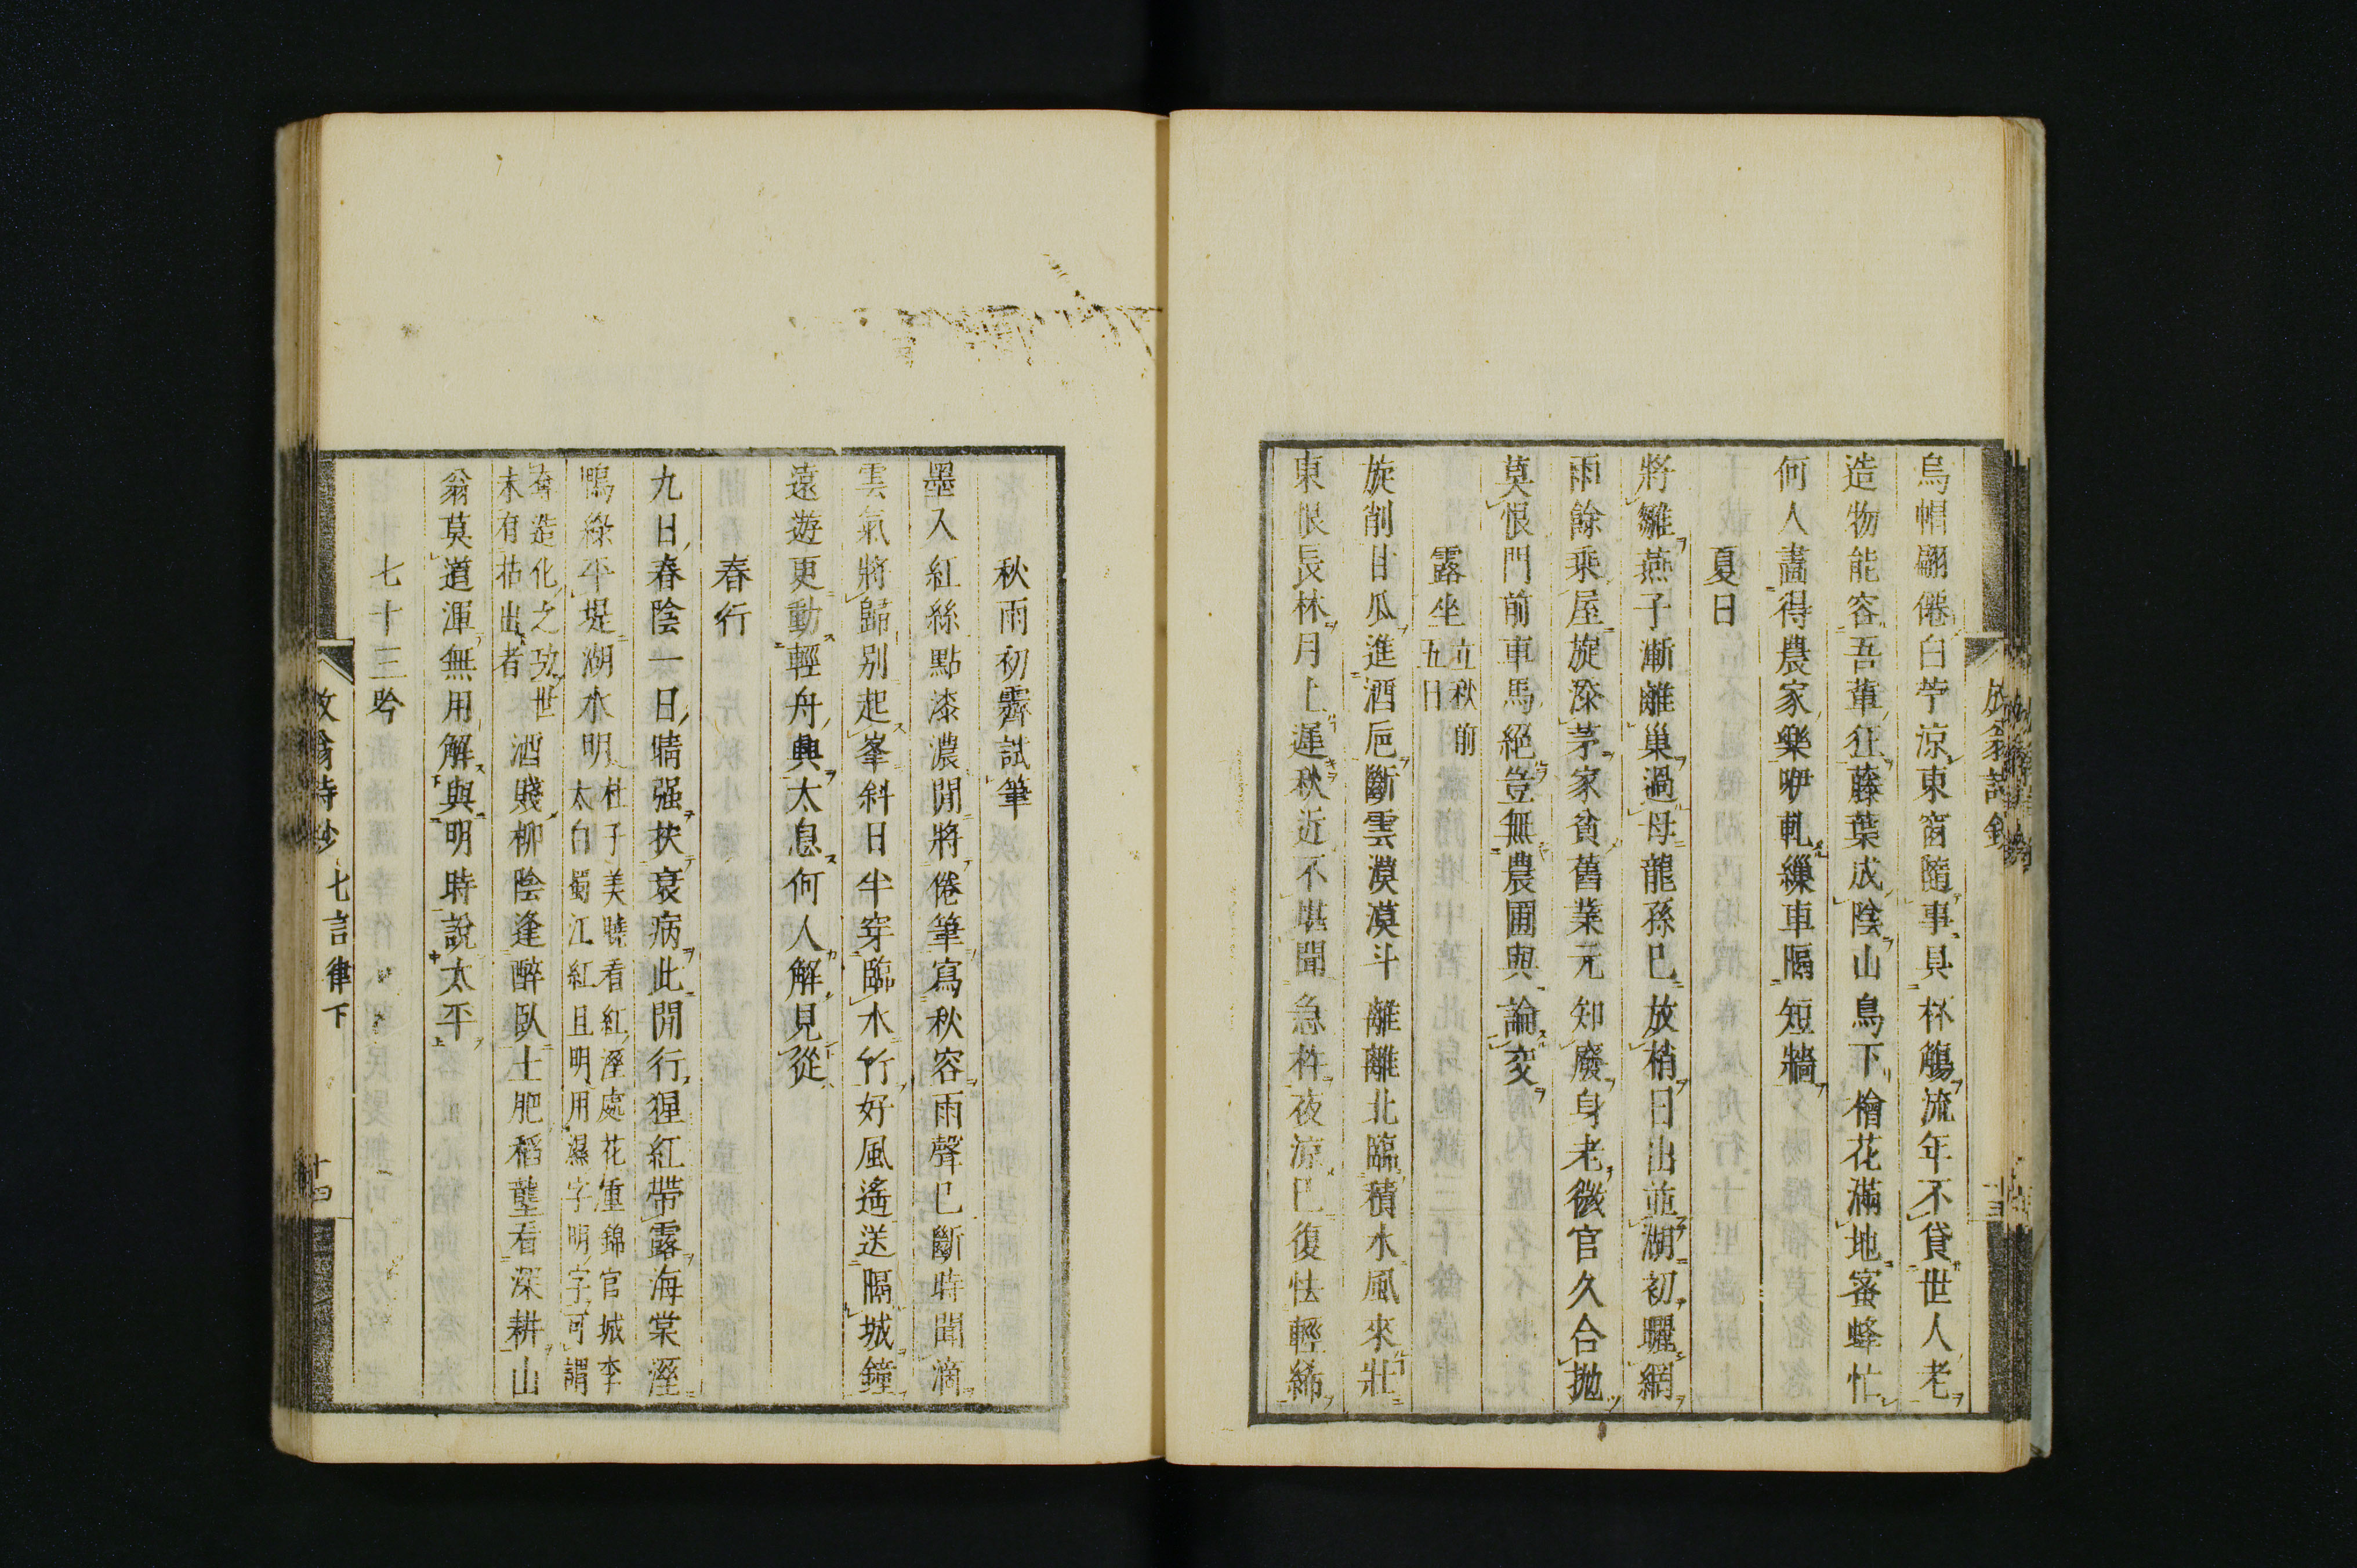 烏帽翩僊白苧涼東窗隨事具杯觴流年不貸世人老
造物能容吾輩狂藤葉成陰山鳥下檜花滿地蜜蜂忙
何人畵得農家樂咿軋繅車隔短牆
夏日
將雛燕子漸離巢過母龍孫已放梢日出並湖初曬網
雨餘乘屋旋添茅家貧舊業元知廢身老微官久合抛
莫恨門前車馬絕豈無農圃與論交
露坐 立秋前五日
旋削甘瓜進酒巵斷雲漠漠斗離離北臨積水風來壯
東恨長林月上遲秋近不堪聞急杵夜涼已復怯輕絺
秋雨初霽試筆
墨入紅絲點漆濃閒將倦筆寫秋容雨聲已斷時聞滴
雲氣將歸别起峯斜日半穿臨水竹好風遙送隔城鐘
遠遊更動輕舟興太息何人解見從
春行
九日春陰一日晴强扶衰病此閒行猩紅帶露海棠溼
鴨綠平堤湖水明 杜子美曉看紅溼處花重錦官城李
太白蜀江紅且明用濕字明字可謂
奪造化之功世
未有拈出者
酒賤柳陰逢醉臥土肥稻壟看深耕山
翁莫道渾無用解與明時說太平
七十三吟
放翁詩鈔 七言律下 十四